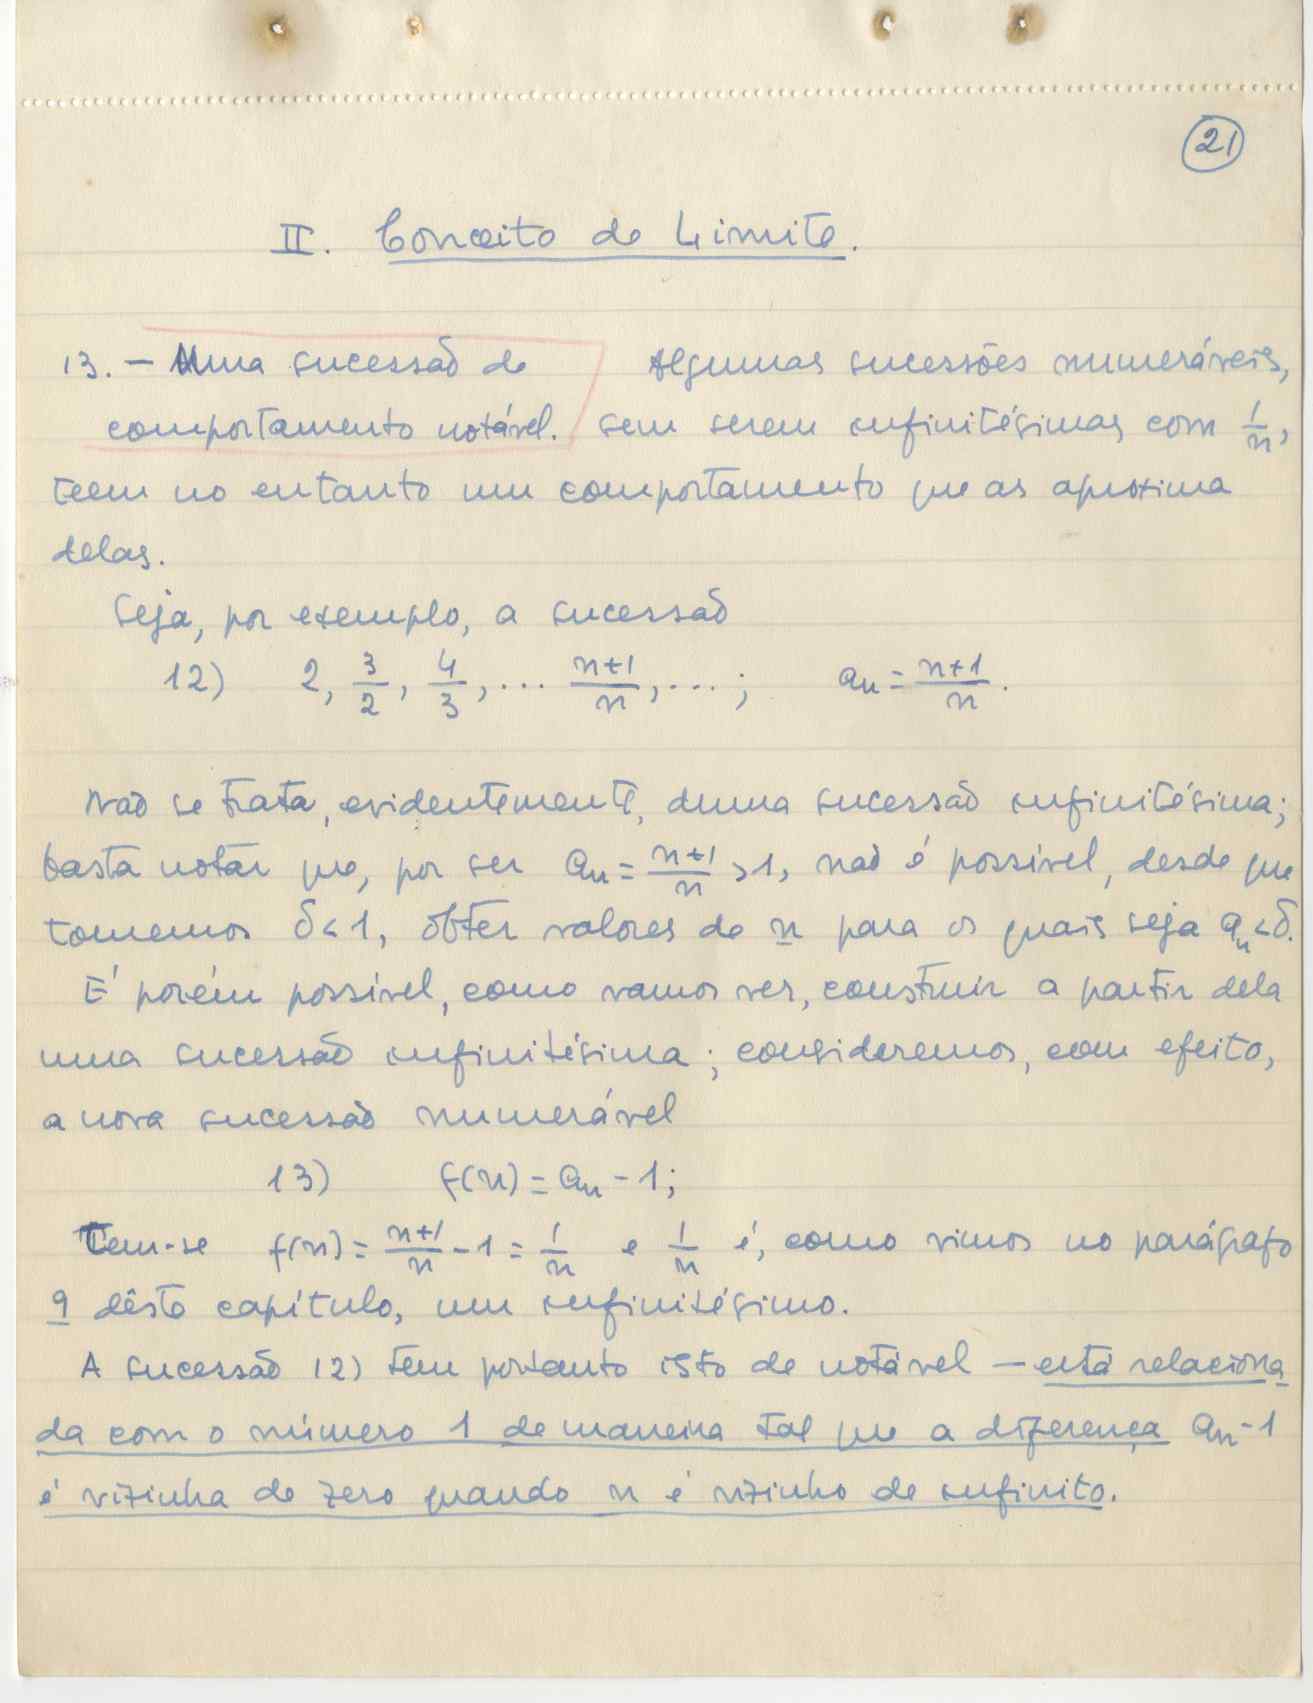 21
II. Conceito de Limite.
13. — Uma sucessão de Algumas sucessões numeráveis,
comportamento notável. sem serem infinitésimas com 1/n,
teem no entanto um comportamento que as aproxima
delas.
Seja, por exemplo, a sucessão
12) 2, 3/2, 4/3, ... n+1/n, ... ; an = n+1/n.
Não se trata, evidentemente, duma sucessão infinitésima;
basta notar que, por ser an = n+1/n >1, não é possível, desde que
tomemos δ<1, obter valores de n para os quais seja an<δ.
É porém possível, como vamos ver, construir a partir dela
uma sucessão infinitésima; consideremos, com efeito,
a nova sucessão numerável
13) f(n) = an - 1;
Tem-se f(n) = n+1/n - 1 = 1/n e 1/n é, como vimos no parágrafo
9 dêste capítulo, um infinitésimo.
A sucessão 12) tem portanto isto de notável — está relaciona
da com o número 1 de maneira tal que a diferença an-1
é vizinha de zero quando n é vizinho de infinito.